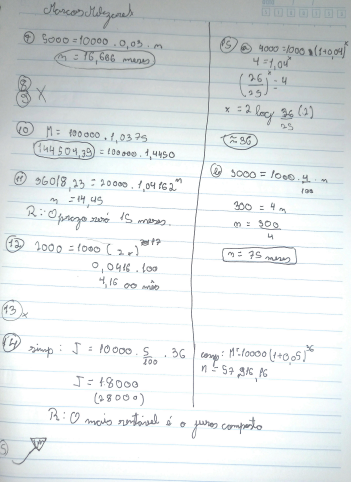 Marcos Menezes
7) 5000 = 10000 . 0,03 . m
m = 16,666 meses
8
9 X
10 M = 100000 . 1,0375
144504,39 = 100000 . 1,4450
11 36018,23 = 20000 . 1,04162^m
m = 14,45
R: O prazo será 15 meses.
12 2000 = 1000 (
0,0416 . 100
4,16 ao mês
13 x
14 simp: J = 10000 . 5/100 . 36
J = 18000
(28000)
comp: M = 10000 (1+0,05)^36
n = 57,916,16
R: O mais rentável é o juros composto
15 a 4000 = 1000 . (1+0,04)^x
4 = 1,04^x
(26/25)^x = 4
x = 2 log 26/25 (2)
≈ 36
3000 = 1000 . 4/100 . m
300 = 4m
m = 300/4
m = 75 meses